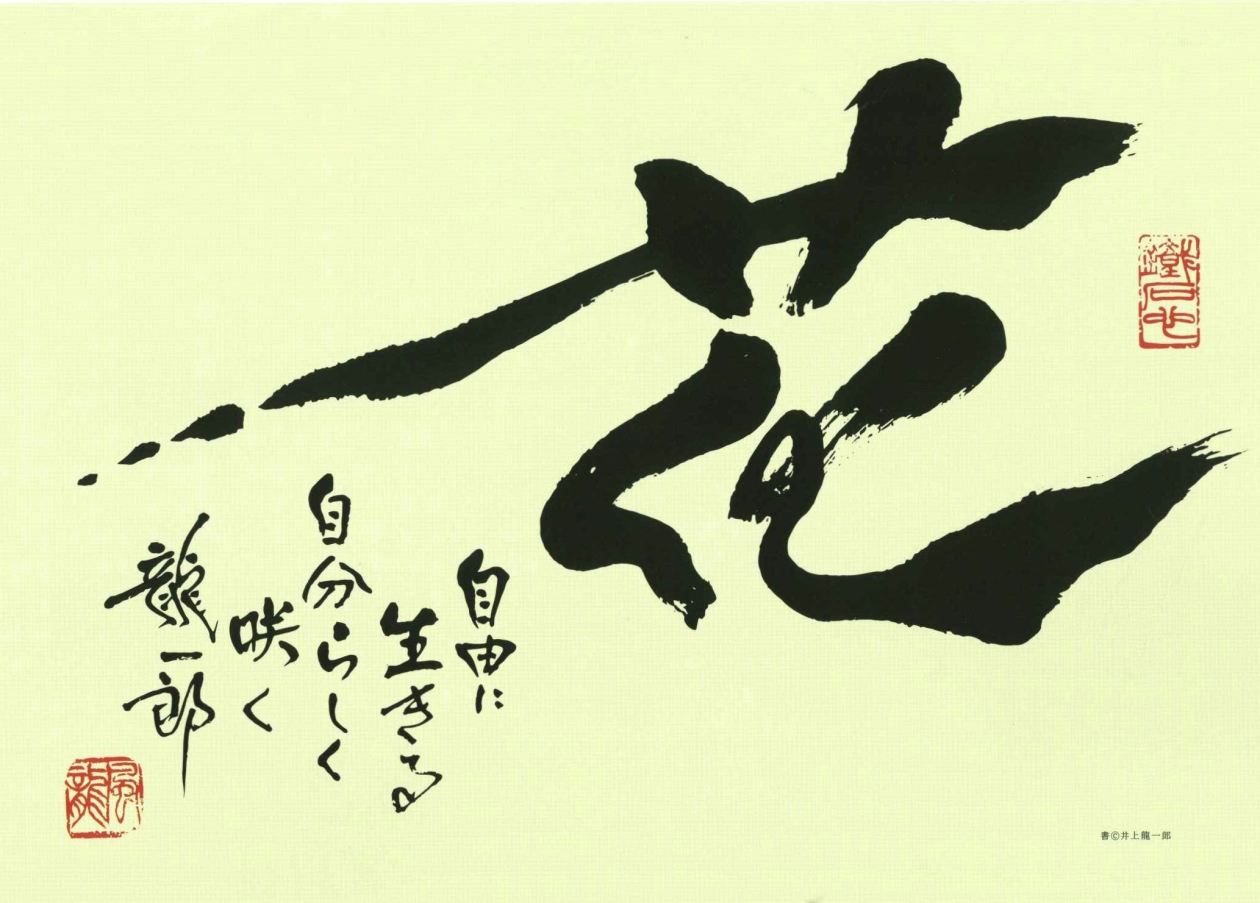 花
自由に
生きる
自分らしく
咲く
龍一郎
鐵石心
風龍
書©井上龍一郎